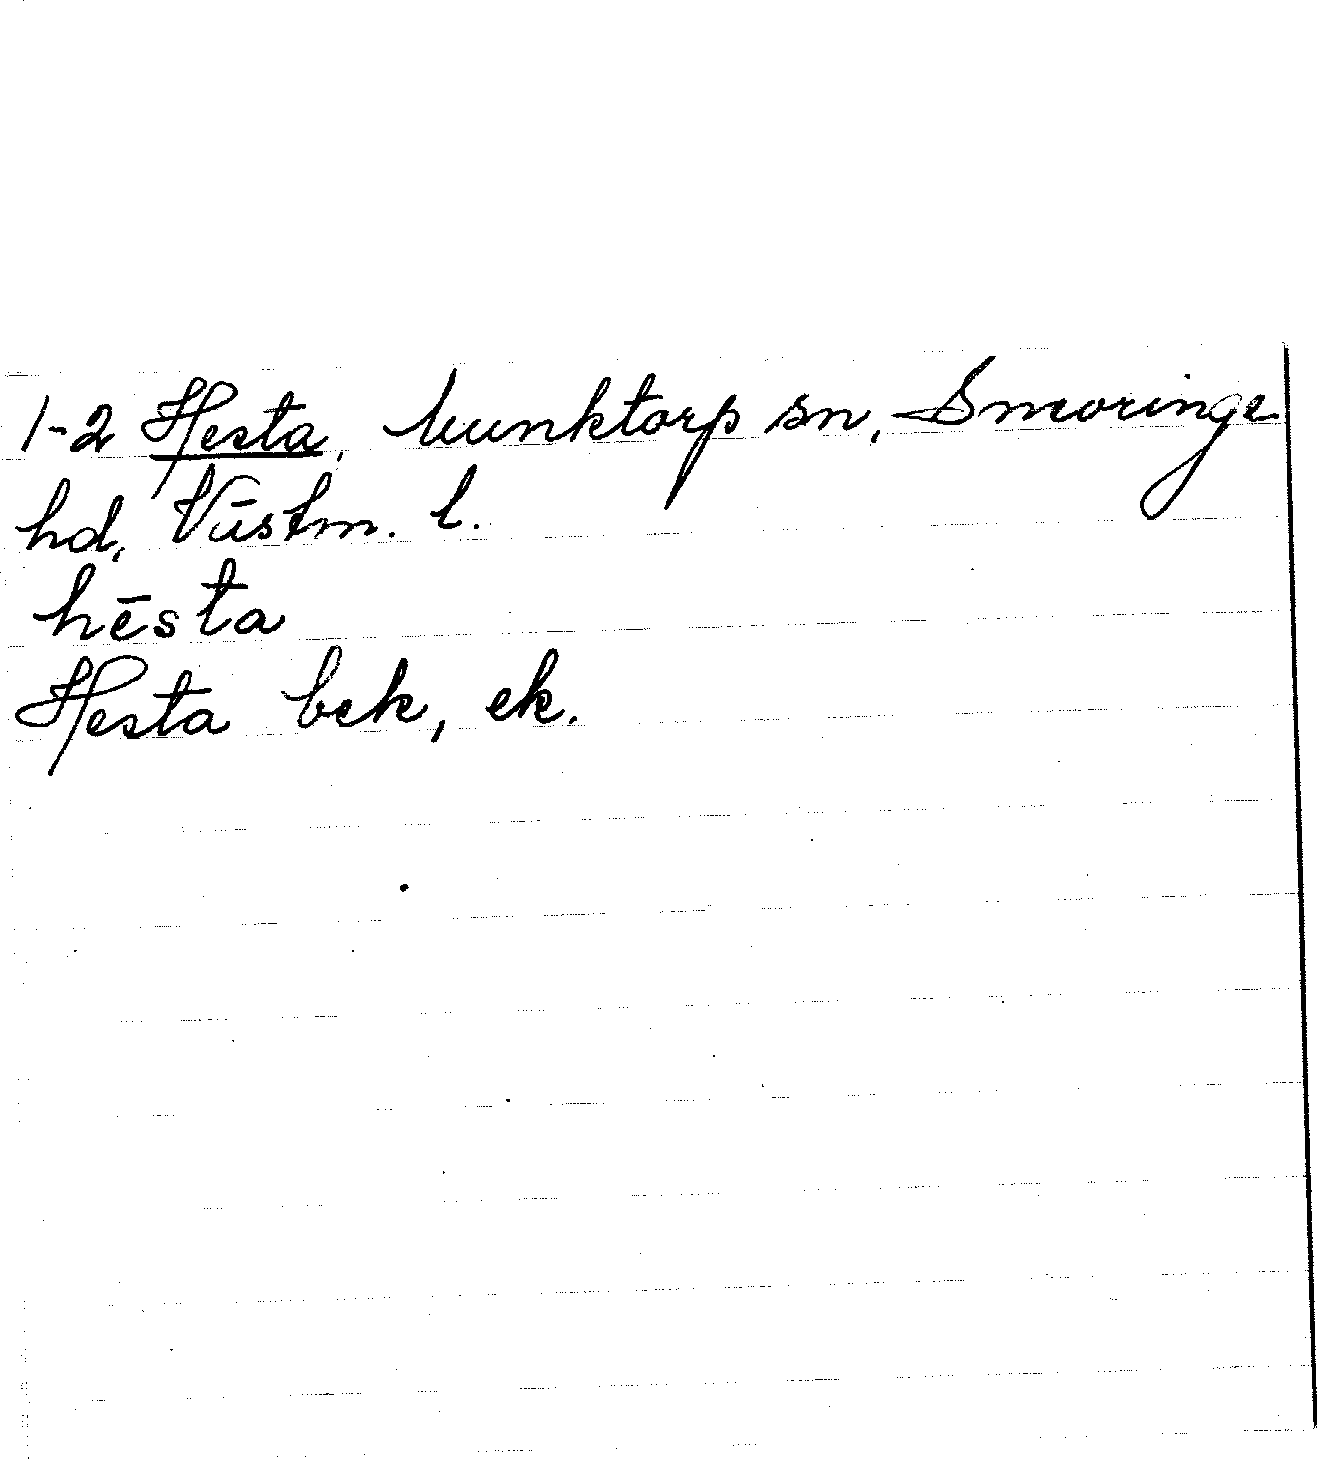 1-2 Hesta, Munktorp sn, Snevringe
hd, Västm. l.
hēsta
Hesta bek, ek.